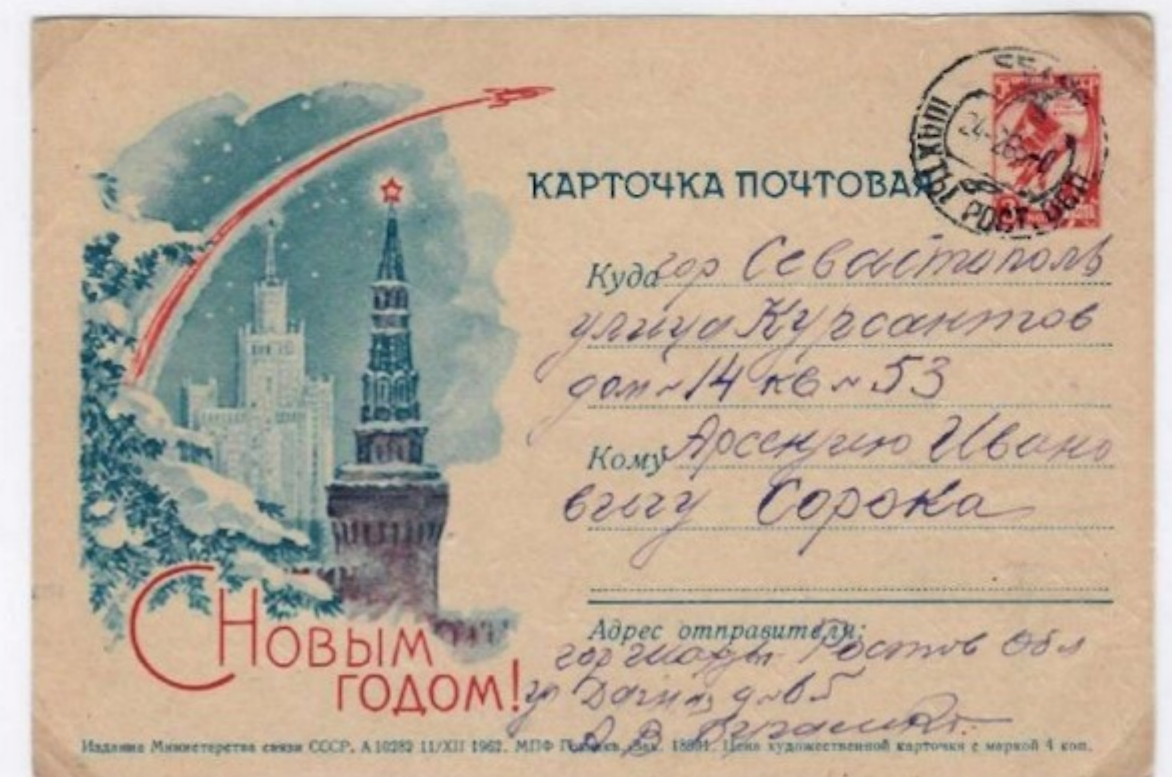 КАРТОЧКА ПОЧТОВАЯ
ШАХТЫ РОСТ. ОБЛ
Куда гор Севастополь
улица Курсантов
дом № 14 кв № 53
Кому Арсентию Ивано
вичу Сорока
Адрес отправителя:
гор Шахты Ростов Обл
С Новым
годом!
Издание Министерства связи СССР. А 10282 11/XII 1962. МПФ Гознака. Зак. Цена художественной карточки с маркой 4 коп.